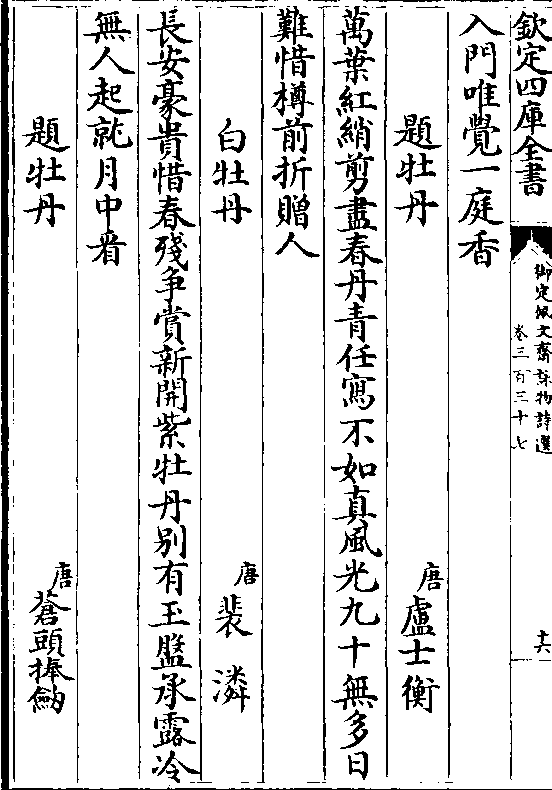 欽定四庫全書
御定佩文齋詠物詩選
卷三百三十七
十六
入門唯覺一庭香
題牡丹
唐
盧士衡
萬葉紅綃剪盡春丹青任寫不如真風光九十無多日
難惜樽前折贈人
白牡丹
唐
裴潾
長安豪貴惜春殘争賞新開紫牡丹别有玉盤承露冷
無人起就月中看
題牡丹
唐
蒼頭捧劒